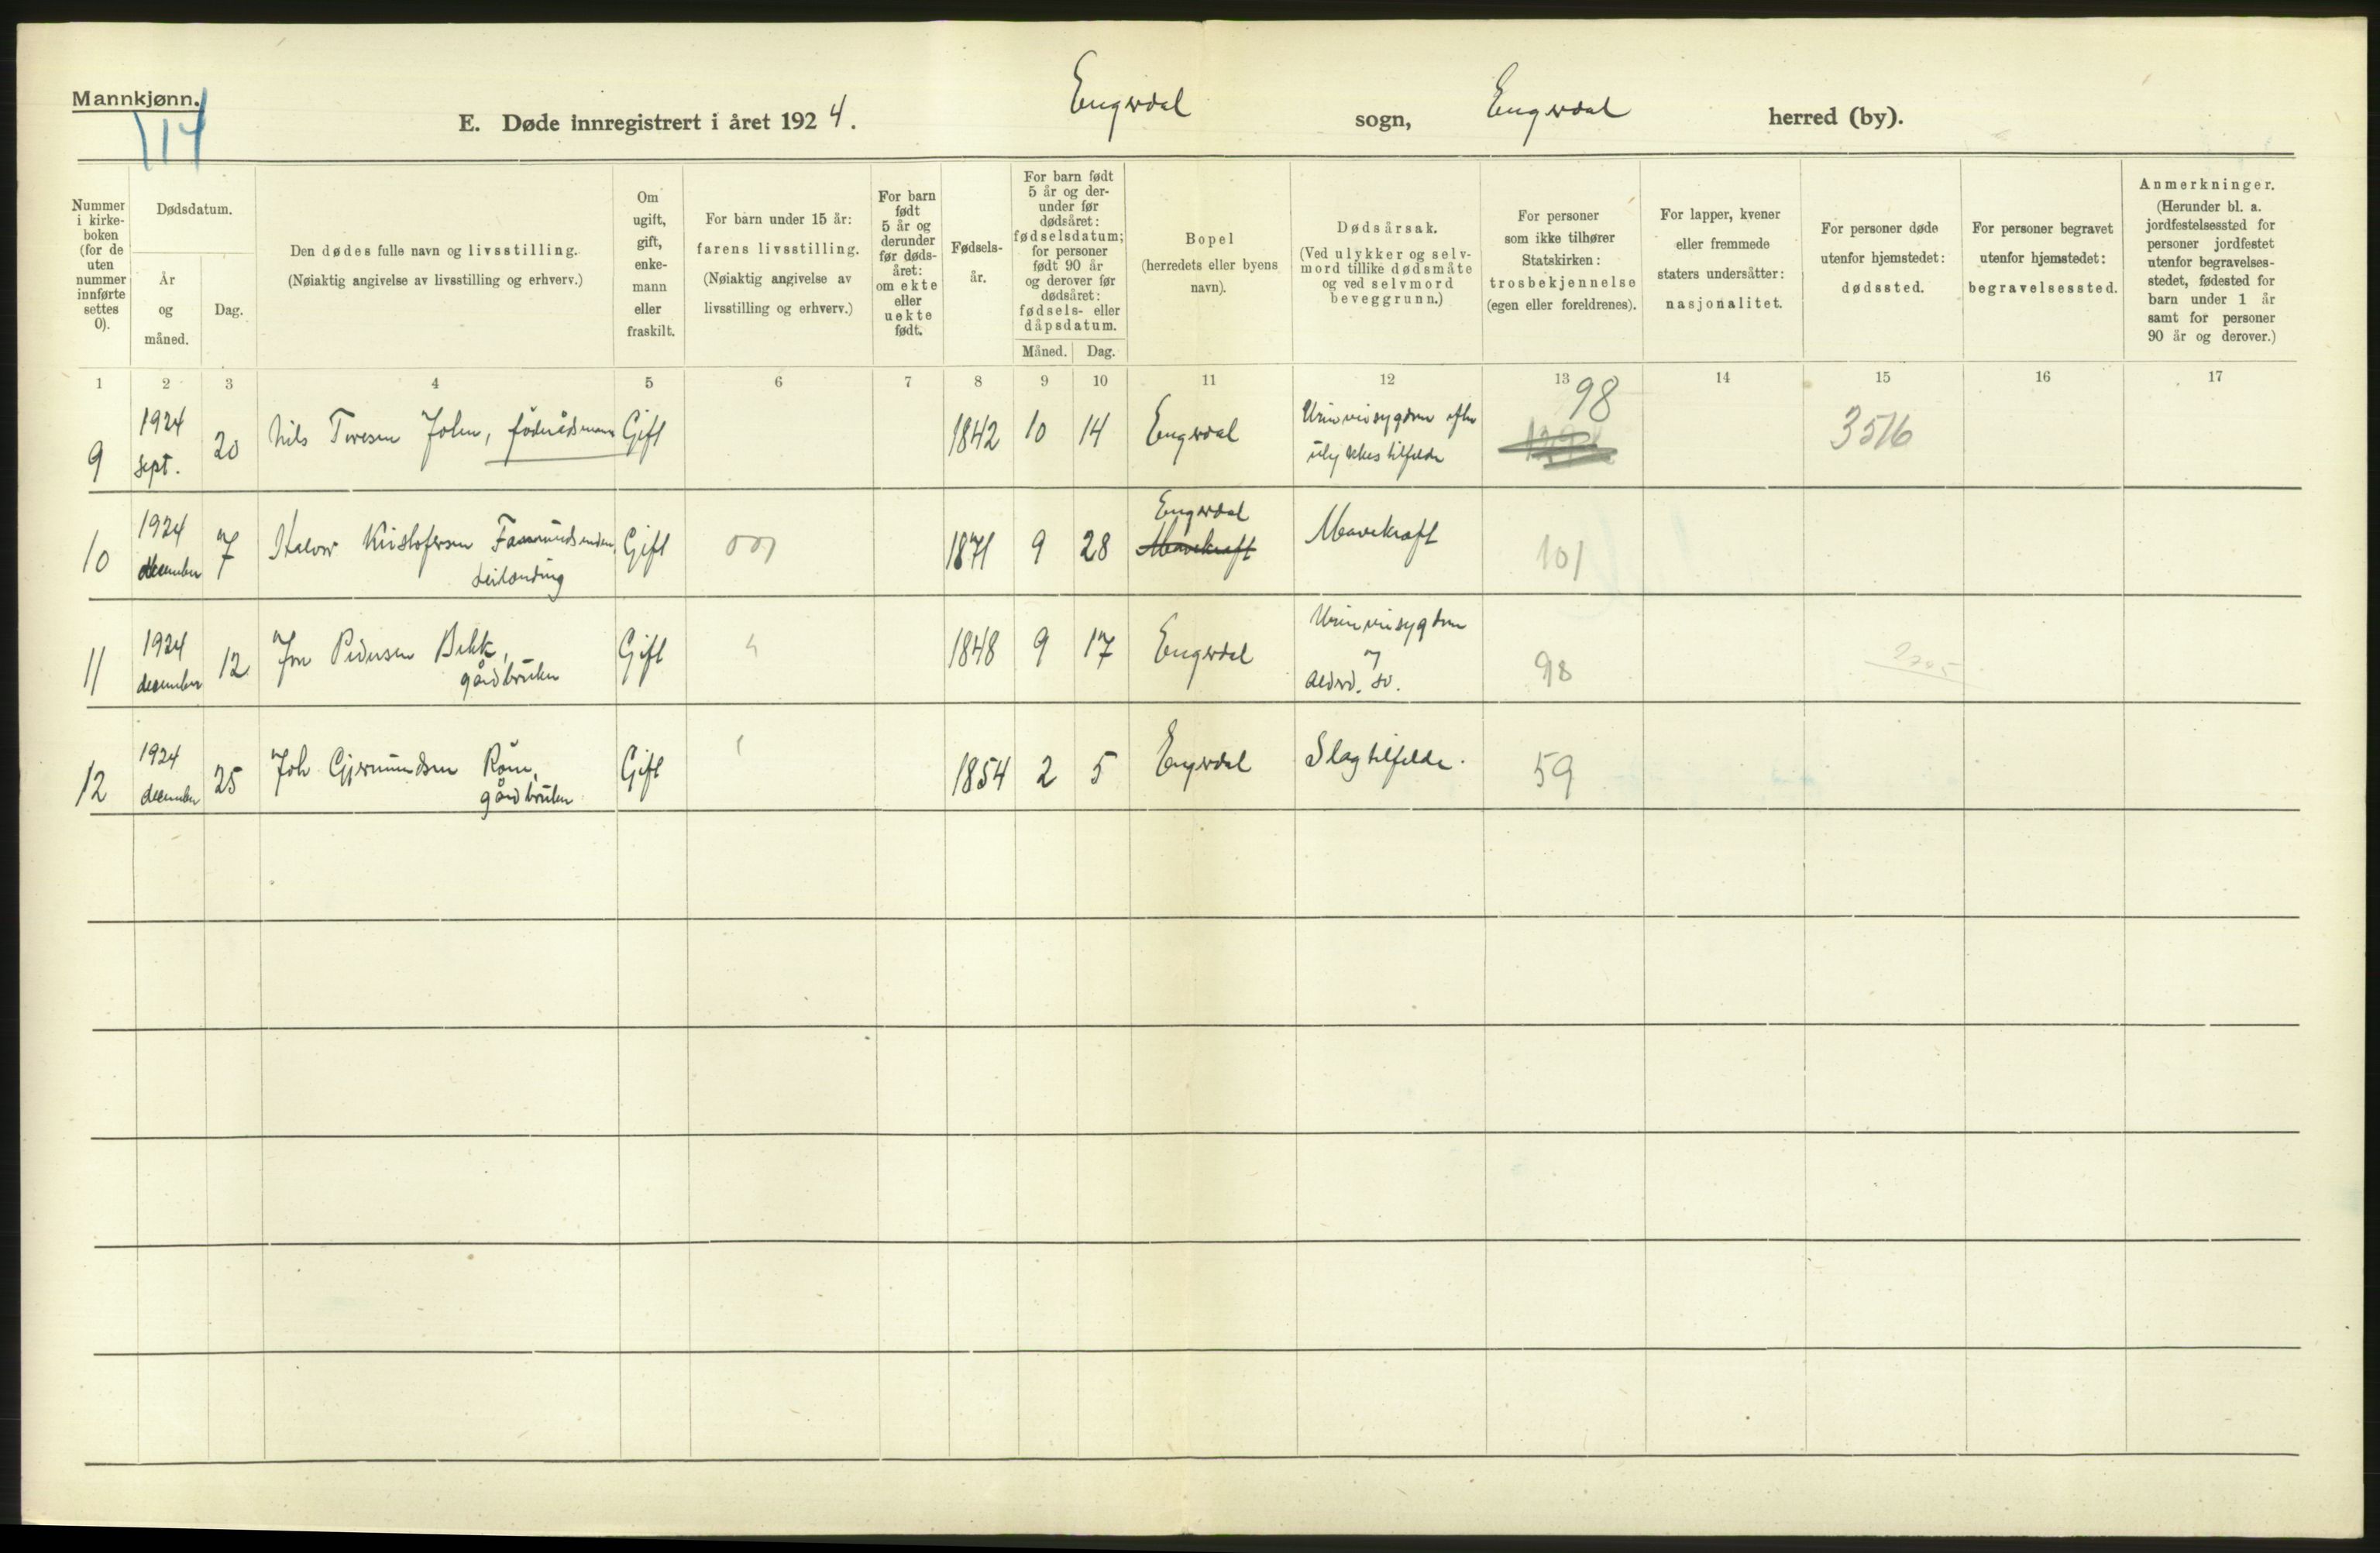 Mannkjønn.
114
E. Døde innregistrert i året 1924.
Engerdal sogn, Engerdal herred (by).
Nummer i kirke- boken (for de uten nummer innførte settes 0).
Dødsdatum.
År og måned.
Dag.
Den dødes fulle navn og livsstilling.
(Nøiaktig angivelse av livsstilling og erhverv.)
Om ugift, gift, enke- mann eller fraskilt.
For barn under 15 år:
farens livsstilling.
(Nøiaktig angivelse av
livsstilling og erhverv.)
For barn født 5 år og derunder før døds- året: om ekte eller uekte født.
Fødsels- år.
For barn født 5 år og der- under før dødsåret: fødselsdatum; for personer født 90 år og derover før dødsåret: fødsels- eller dåpsdatum.
Måned. Dag.
Bopel
(herredets eller byens navn).
Dødsårsak.
(Ved ulykker og selv- mord tillike dødsmåte og ved selvmord beveggrunn.)
For personer som ikke tilhører Statskirken: trosbekjennelse (egen eller foreldrenes).
For lapper, kvener eller fremmede staters undersåtter: nasjonalitet.
For personer døde utenfor hjemstedet: dødssted.
For personer begravet utenfor hjemstedet: begravelsessted.
Anmerkninger.
(Herunder bl. a. jordfestelsessted for personer jordfestet utenfor begravelses- stedet, fødested for barn under 1 år samt for personer 90 år og derover.)
1 2 3 4 5 6 7 8 9 10 11 12 13 14 15 16 17
9 1924 sept. 20 Nils Toresen John, föderådsmann Gift 1842 10 14 Engerdal Urinveisygdom efter ulykkestilfelde 98 3516
10 1924 december 7 Halvor Kristofersen Fæmundsenden, Leilending Gift 001 1871 9 28 Engerdal Mavekræft Mavekræft 101
11 1924 desember 12 Jon Pedersen Bekk, gårdbruker Gift 4 1848 9 17 Engerdal Urinveisygdom og alderd. sv. 98
12 1924 december 25 Joh Gjermundsen Röm, gårdbruker Gift 1854 2 5 Engerdal Slagtilfelde. 59